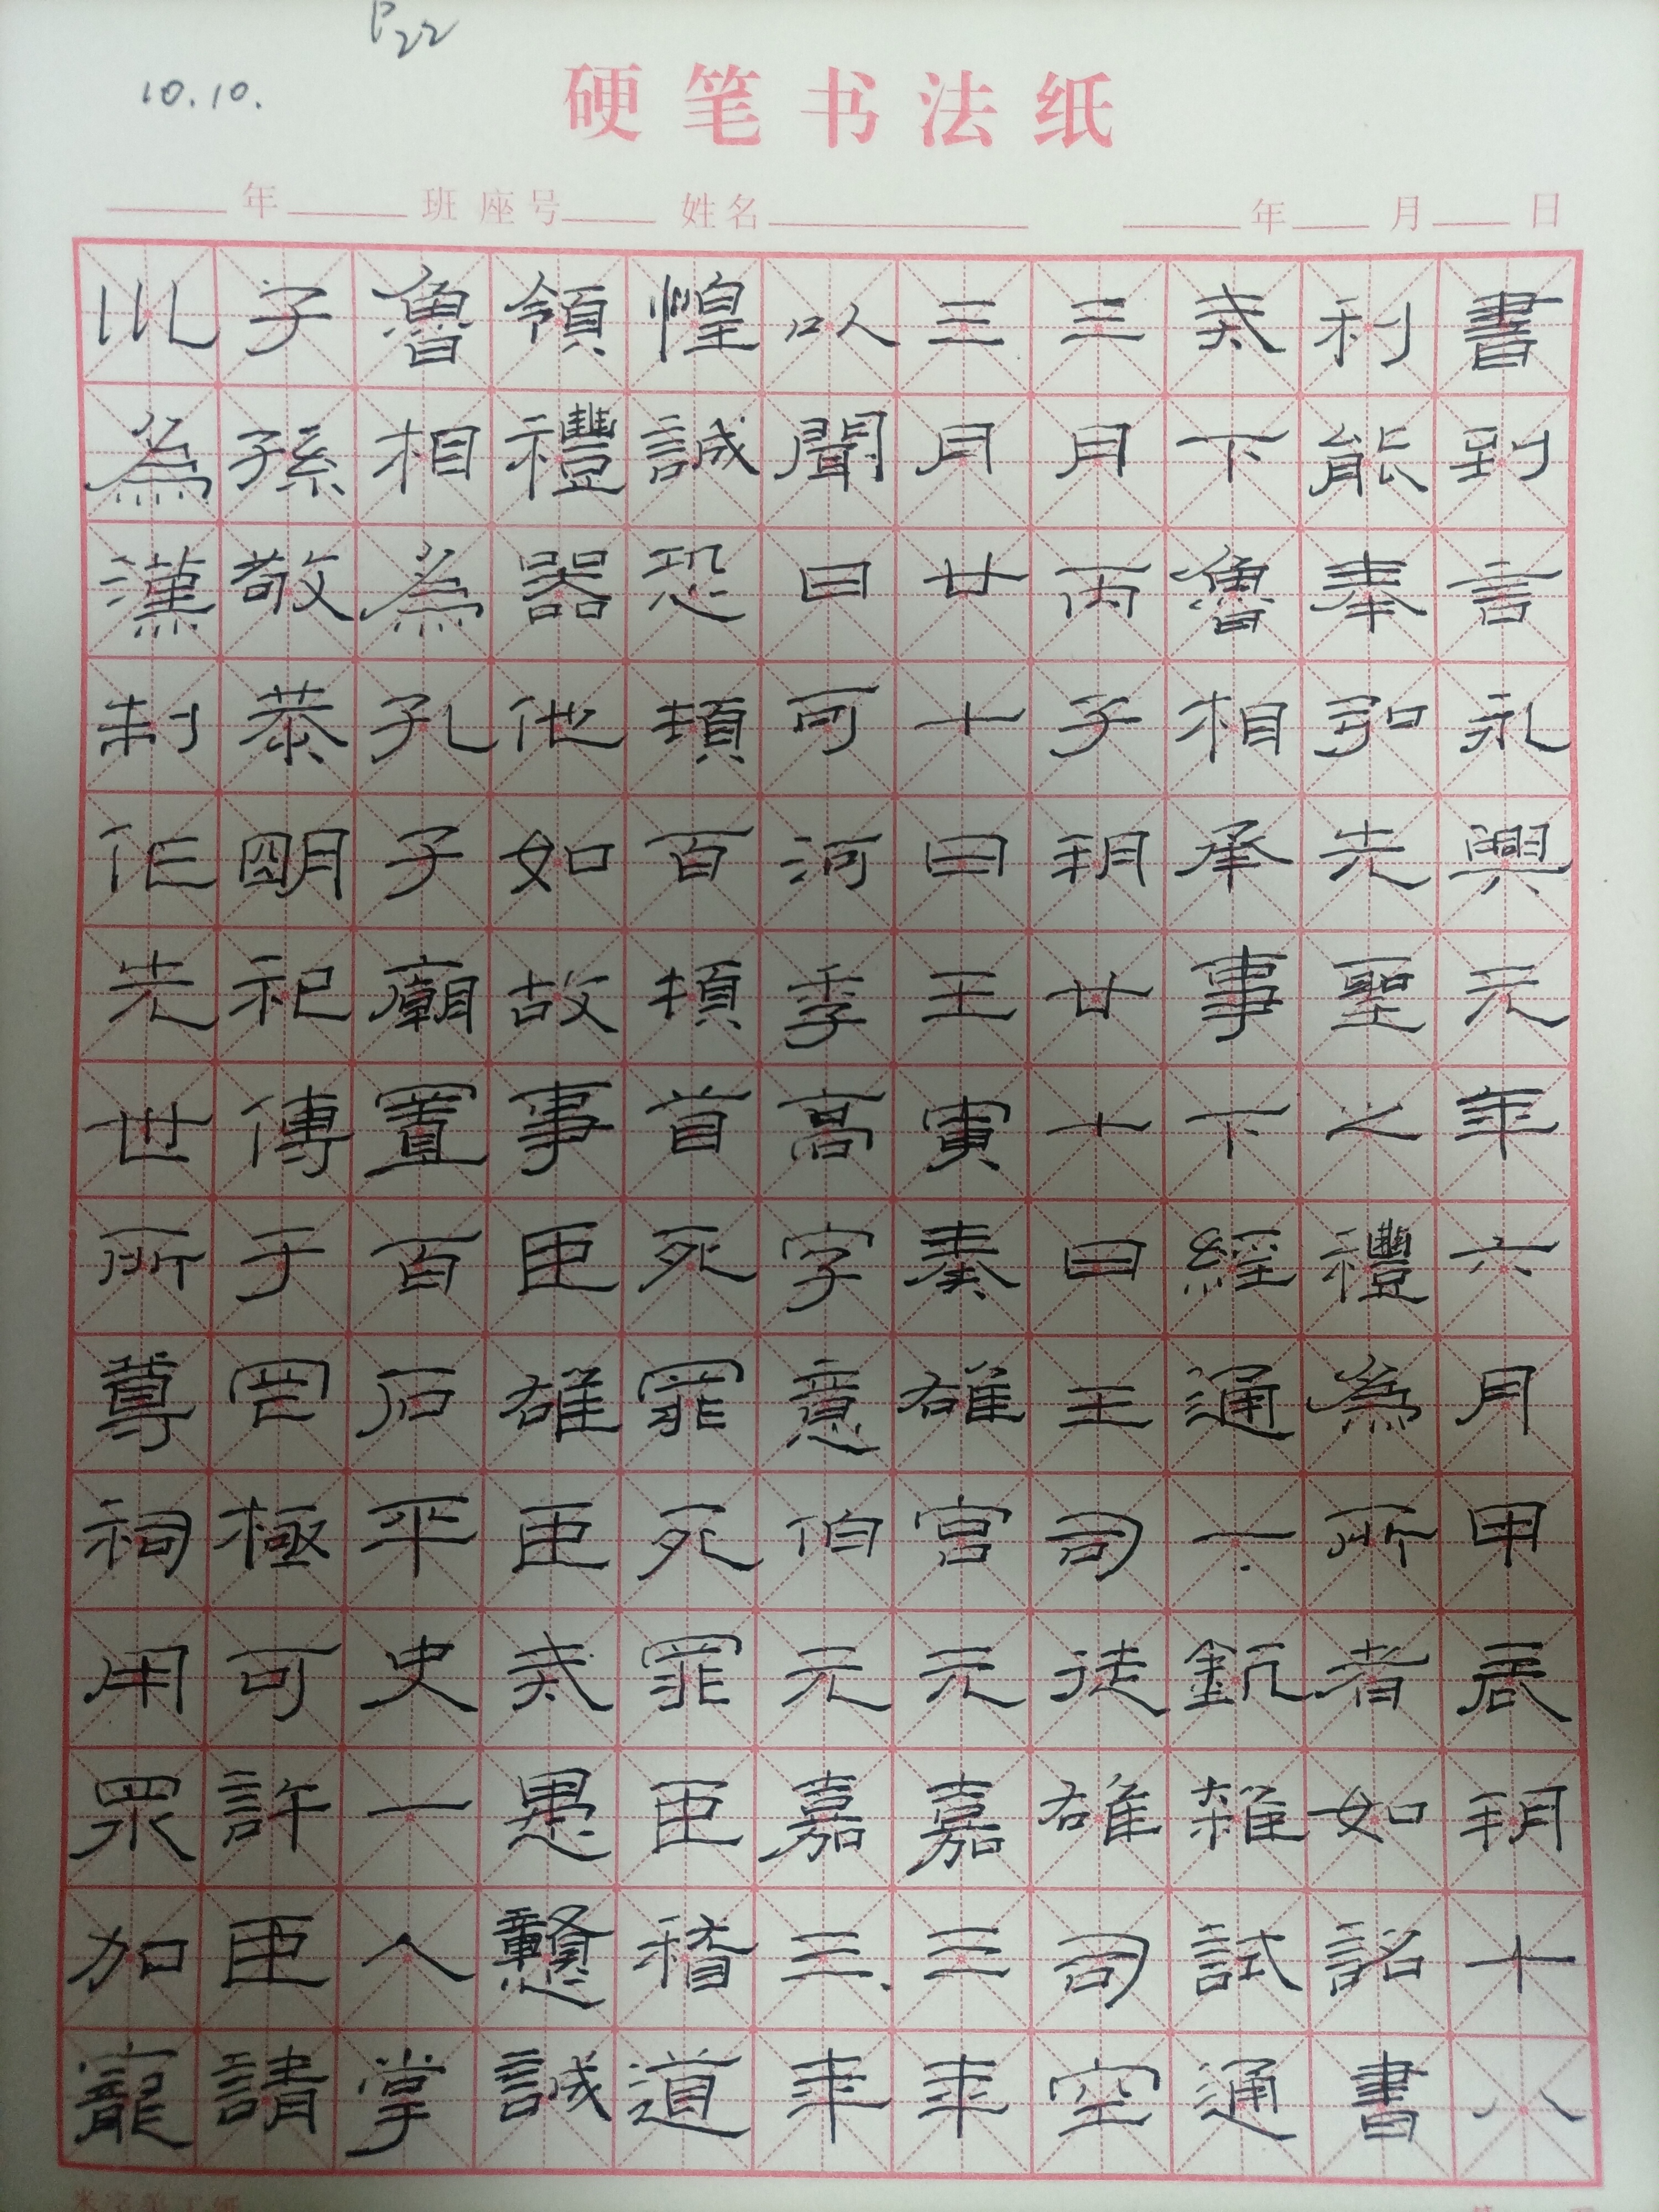 P22
10.10.
硬笔书法纸
年 班 座号 姓名 年 月 日
巛為漢制作先世所尊祠用眾加寵
子孫敬恭明祀傳于罔極可許臣請
魯相為孔子廟置百石卒史一人掌
領禮器他如故事臣雄臣戒愚戇誠
惶誠恐頓首頓首死罪死罪臣稽道
以聞曰可河季高字意伯元嘉三年
三月廿七日王寅奏雒宮元嘉三年
三月丙子朔廿七日王司徒雄司空
戒下魯相承事下經通一雜試通
利能奉弘先聖之禮為所者如詔書
書到言永興元年六月甲辰朔十八